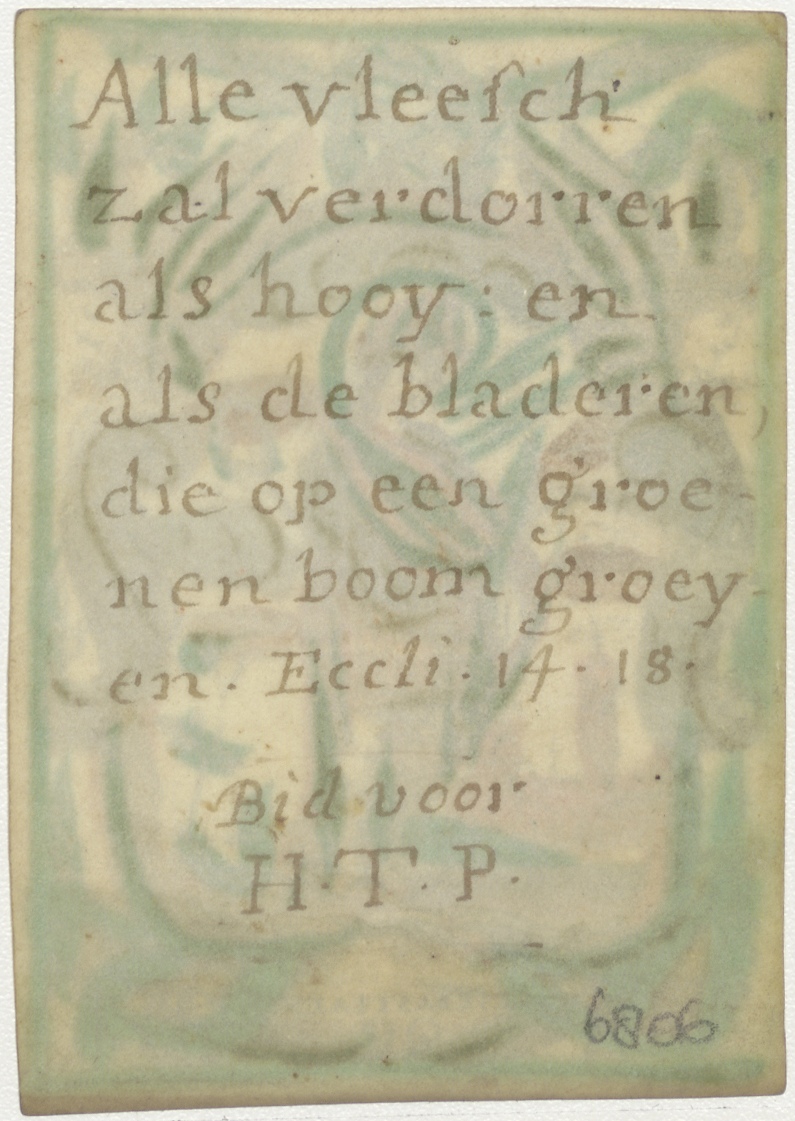 Alle vleeſch
zal verdorren
als hooy: en
als de bladeren,
die op een groe-
nen boom groey-
en. Eccli. 14. 18.
Bid voor
H. T. P.
6806